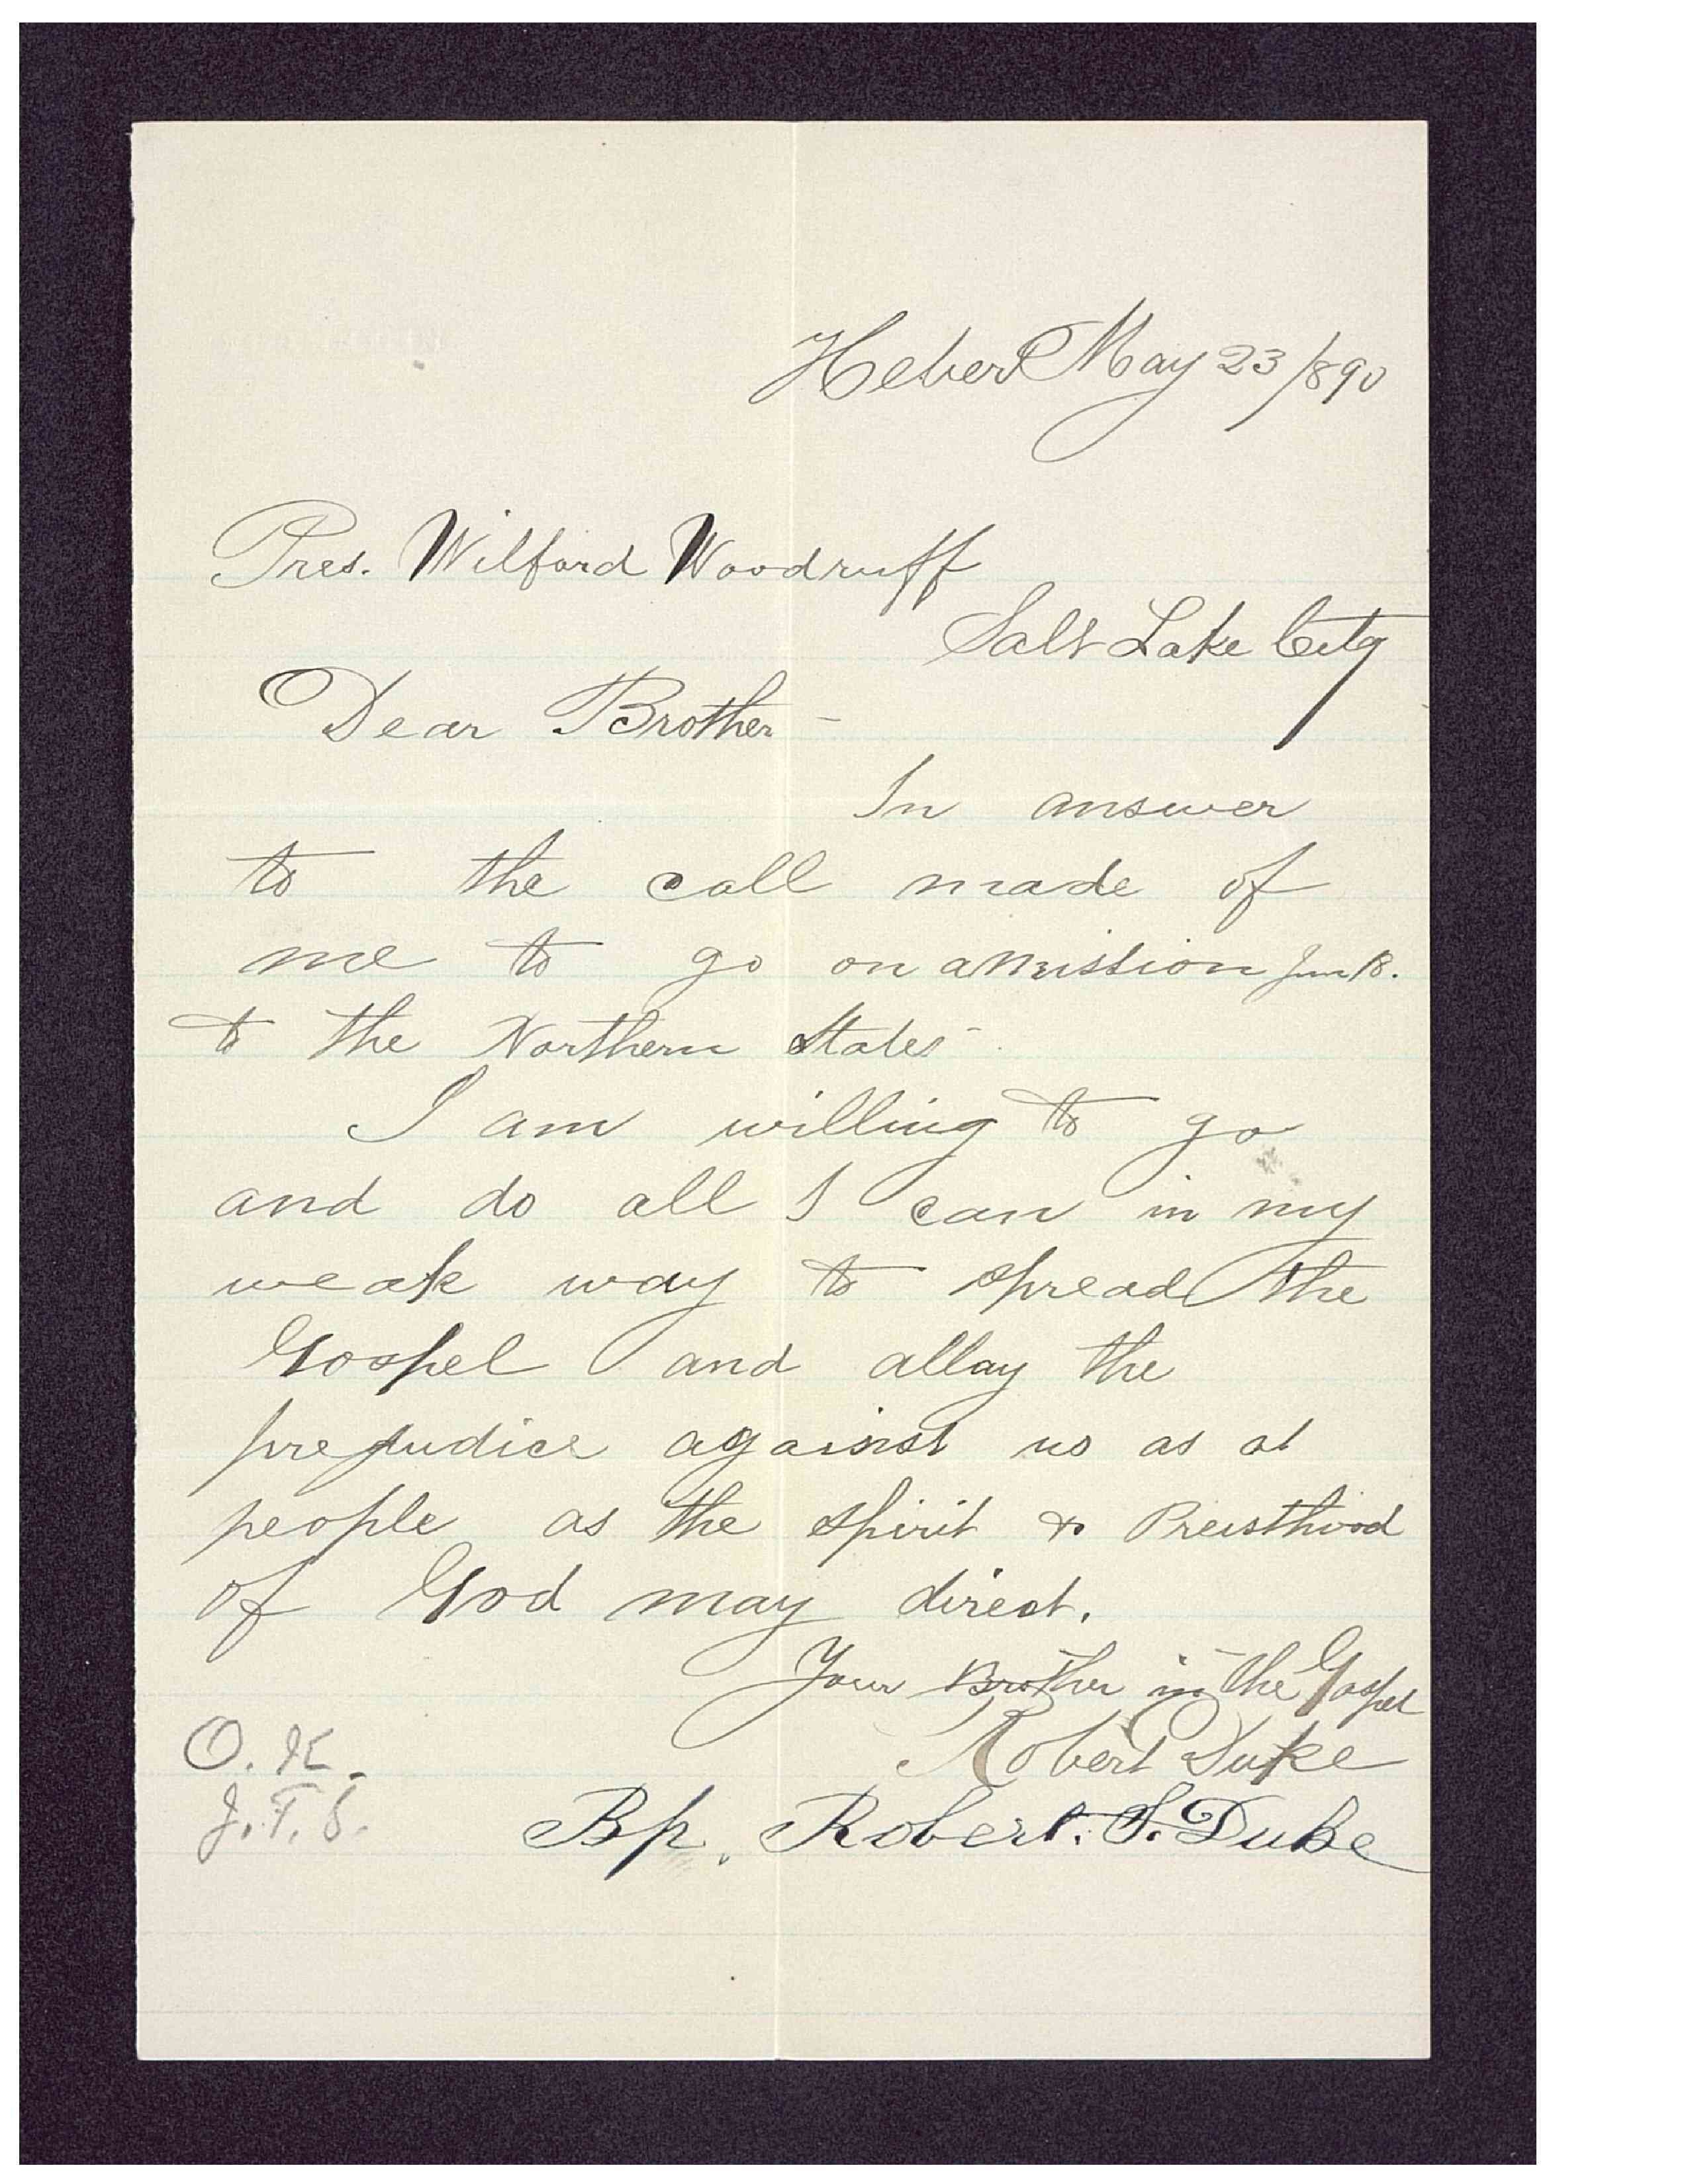 Heber May 23/890
Pres. Wilford Woodruff
Salt Lake City
Dear Brother -
In answer
to the call made of
me to go on a Mission Jun 18.
to the Northern States
I am willing to go
and do all I can in my
weak way to spread the
Gospel and allay the
prejudice against us as a
people as the spirit & Preisthood
of God may direct.
Your Brother in the Gospel
Robert Duke
O. K.
J. F. S.
Bp. Robert. S. Duke